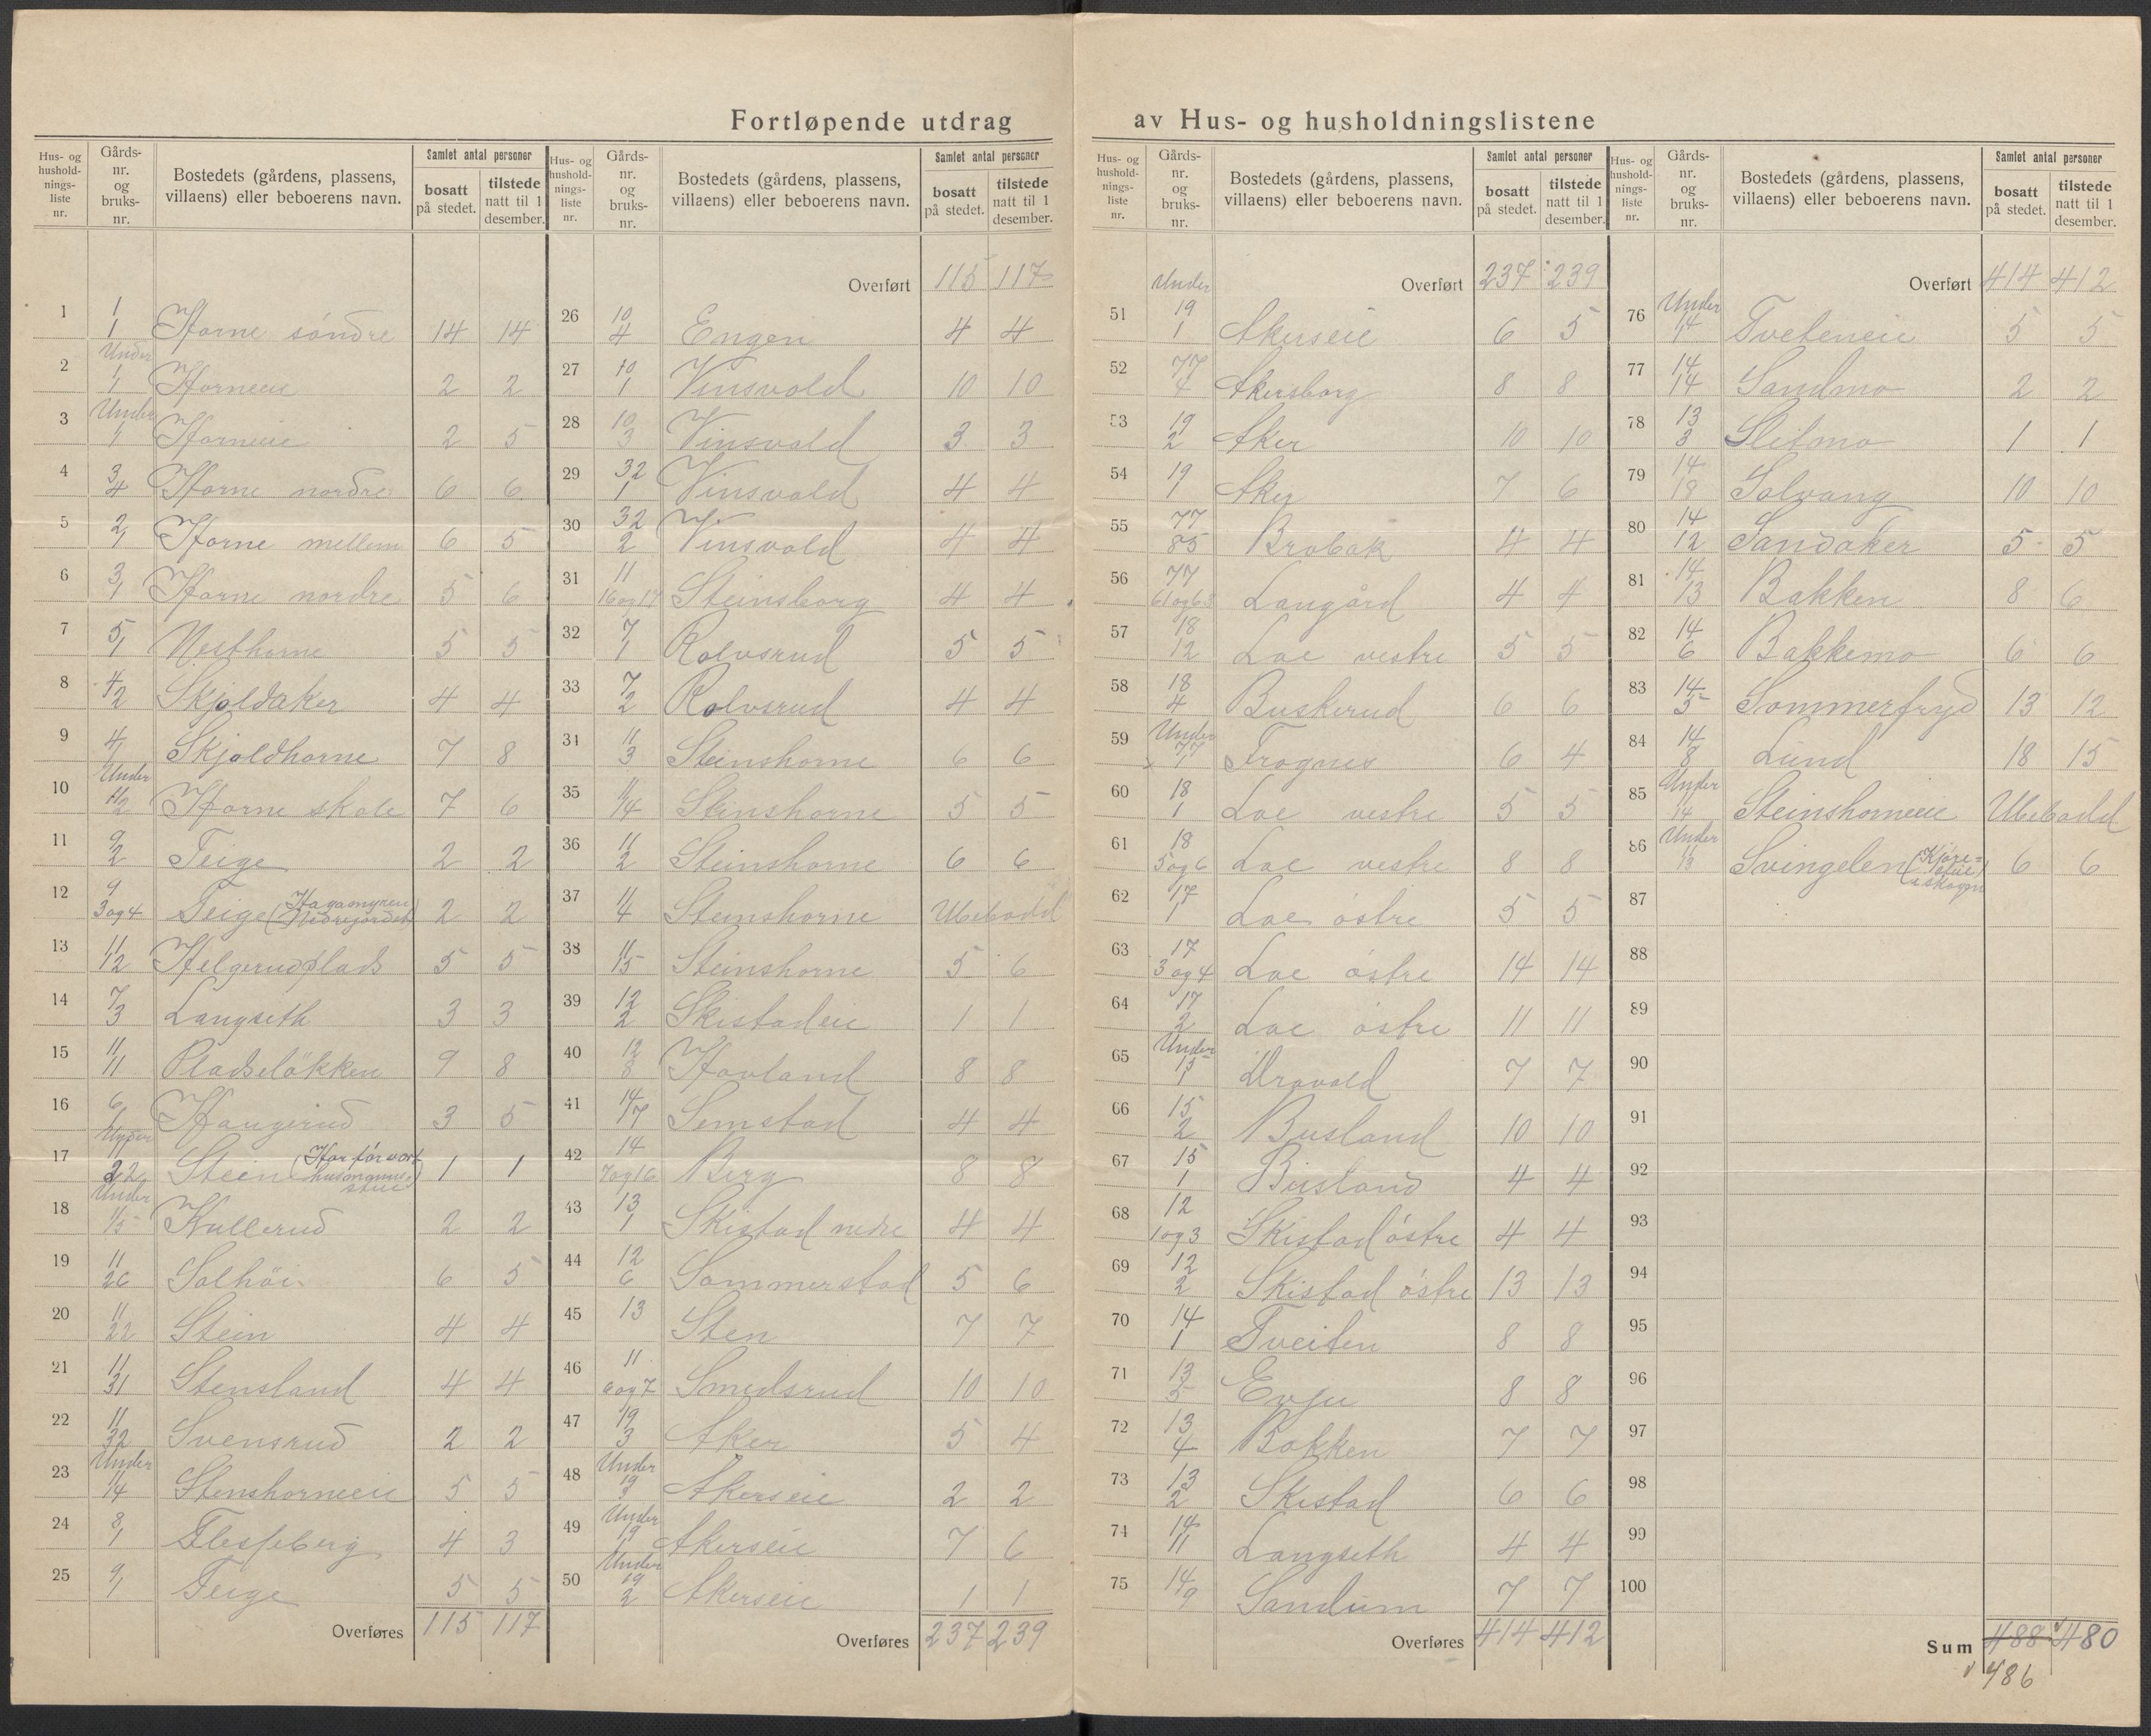 Fortløpende utdrag av Hus- og husholdningslistene
Hus- og hushold-nings-liste nr. Gårds-nr. og bruks-nr. Bostedets (gårdens, plassens, villaens) eller beboerens navn. Samlet antal personer bosatt på stedet. tilstede natt til 1 desember.
1 1/1 Horne söndre 14 14
2 Under 1/1 Horneeie 2 2
3 Under 1/1 Horneeie 2 5
4 3/4 Horne nordre 6 6
5 2/1 Horne mellem 6 5
6 3/1 Horne nordre 5 6
7 5/1 Vesthorne 5 5
8 4/2 Skjoldaker 4 4
9 4/1 Skjoldhorne 7 8
10 Under 4/2 Horne skole 7 6
11 9/2 Teige 2 2
12 9/3 og 4 Teige (Hagamyren Nedrejordet) 2 2
13 11/12 Helgerudplads 5 5
14 7/3 Langseth 3 3
15 11/11 Pladseløkken 9 8
16 6/1 Haugerud 3 5
17 Under 11/22 Stein (Har før vært husmannsstue) 1 1
18 Under 11/5 Kullerud 2 2
19 11/26 Solhöi 6 5
20 11/22 Stein 4 4
21 11/31 Stensland 4 4
22 11/32 Svensrud 2 2
23 Under 11/4 Stenshorneeie 5 5
24 8/1 Flesseberg 4 3
25 9/1 Teige 5 5
Overføres 115 117
Hus- og hushold-nings-liste nr. Gårds-nr. og bruks-nr. Bostedets (gårdens, plassens, villaens) eller beboerens navn. Samlet antal personer bosatt på stedet. tilstede natt til 1 desember.
Overført 115 117
26 10/4 Engen 4 4
27 10/1 Vinsvold 10 10
28 10/3 Vinsvold 3 3
29 32/1 Vinsvold 4 4
30 32/2 Vinsvold 4 4
31 11/16 og 17 Steinsborg 4 4
32 7/1 Rolvsrud 5 5
33 7/2 Rolvsrud 4 4
34 11/3 Steinshorne 6 6
35 11/14 Steinshorne 5 5
36 11/2 Steinshorne 6 6
37 11/4 Steinshorne Ubebodd
38 11/15 Steinshorne 5 6
39 12/2 Skistadeie 1 1
40 12/8 Hovland 8 8
41 14/17 Semstad 4 4
42 14/7 og 16 Berg 8 8
43 13/1 Skistad nedre 4 4
44 12/6 Sommerstad 5 6
45 13 Sten 7 7
46 11/6 og 7 Smedsrud 10 10
47 19/3 Aker 5 4
48 Under 19/3 Akerseie 2 2
49 Under 19/1 Akerseie 7 6
50 Under 19/2 Akerseie 1 1
Overføres 237 239
Hus- og hushold-nings-liste nr. Gårds-nr. og bruks-nr. Bostedets (gårdens, plassens, villaens) eller beboerens navn. Samlet antal personer bosatt på stedet. tilstede natt til 1 desember.
Overført 237 239
51 Under 19/1 Akerseie 6 5
52 77/4 Akersborg 8 8
53 19/2 Aker 10 10
54 19/1 Aker 7 6
55 77/85 Brobak 4 4
56 77/61 og 63 Langård 4 4
57 18/12 Loe vestre 5 5
58 18/4 Buskerud 6 6
59 Under 77/1 Frognes 6 4
60 18/1 Loe vestre 5 5
61 18/5 og 6 Loe vestre 8 8
62 17/1 Loe östre 5 5
63 17/3 og 4 Loe östre 14 14
64 17/2 Loe östre 11 11
65 Under 15/1 Urovold 7 7
66 15/2 Busland 10 10
67 15/1 Busland 4 4
68 12/1 og 3 Skistad östre 4 4
69 12/2 Skistad östre 13 13
70 14/1 Tveiten 8 8
71 13/5 Evju 8 8
72 13/4 Bakken 7 7
73 13/2 Skistad 6 6
74 14/11 Langseth 4 4
75 14/9 Sandum 7 7
Overføres 414 412
Hus- og hushold-nings-liste nr. Gårds-nr. og bruks-nr. Bostedets (gårdens, plassens, villaens) eller beboerens navn. Samlet antal personer bosatt på stedet. tilstede natt til 1 desember.
Overført 414 412
76 Under 14 Tveteneie 5 5
77 14/14 Sandmo 2 2
78 13/3 Sletmo 1 1
79 14/18 Solvang 10 10
80 14/12 Sandaker 5 5
81 14/13 Bakken 8 6
82 14/6 Bakkemo 6 6
83 14/5 Sommerfryd 13 12
84 14/8 Lund 18 15
85 Under 14 Steinshorneeie Ubebodd
86 Under 13 Svingelen (Kjøre- i skogen) 6 6
87
88
89
90
91
92
93
94
95
96
97
98
99
100
Sum 488 480
486